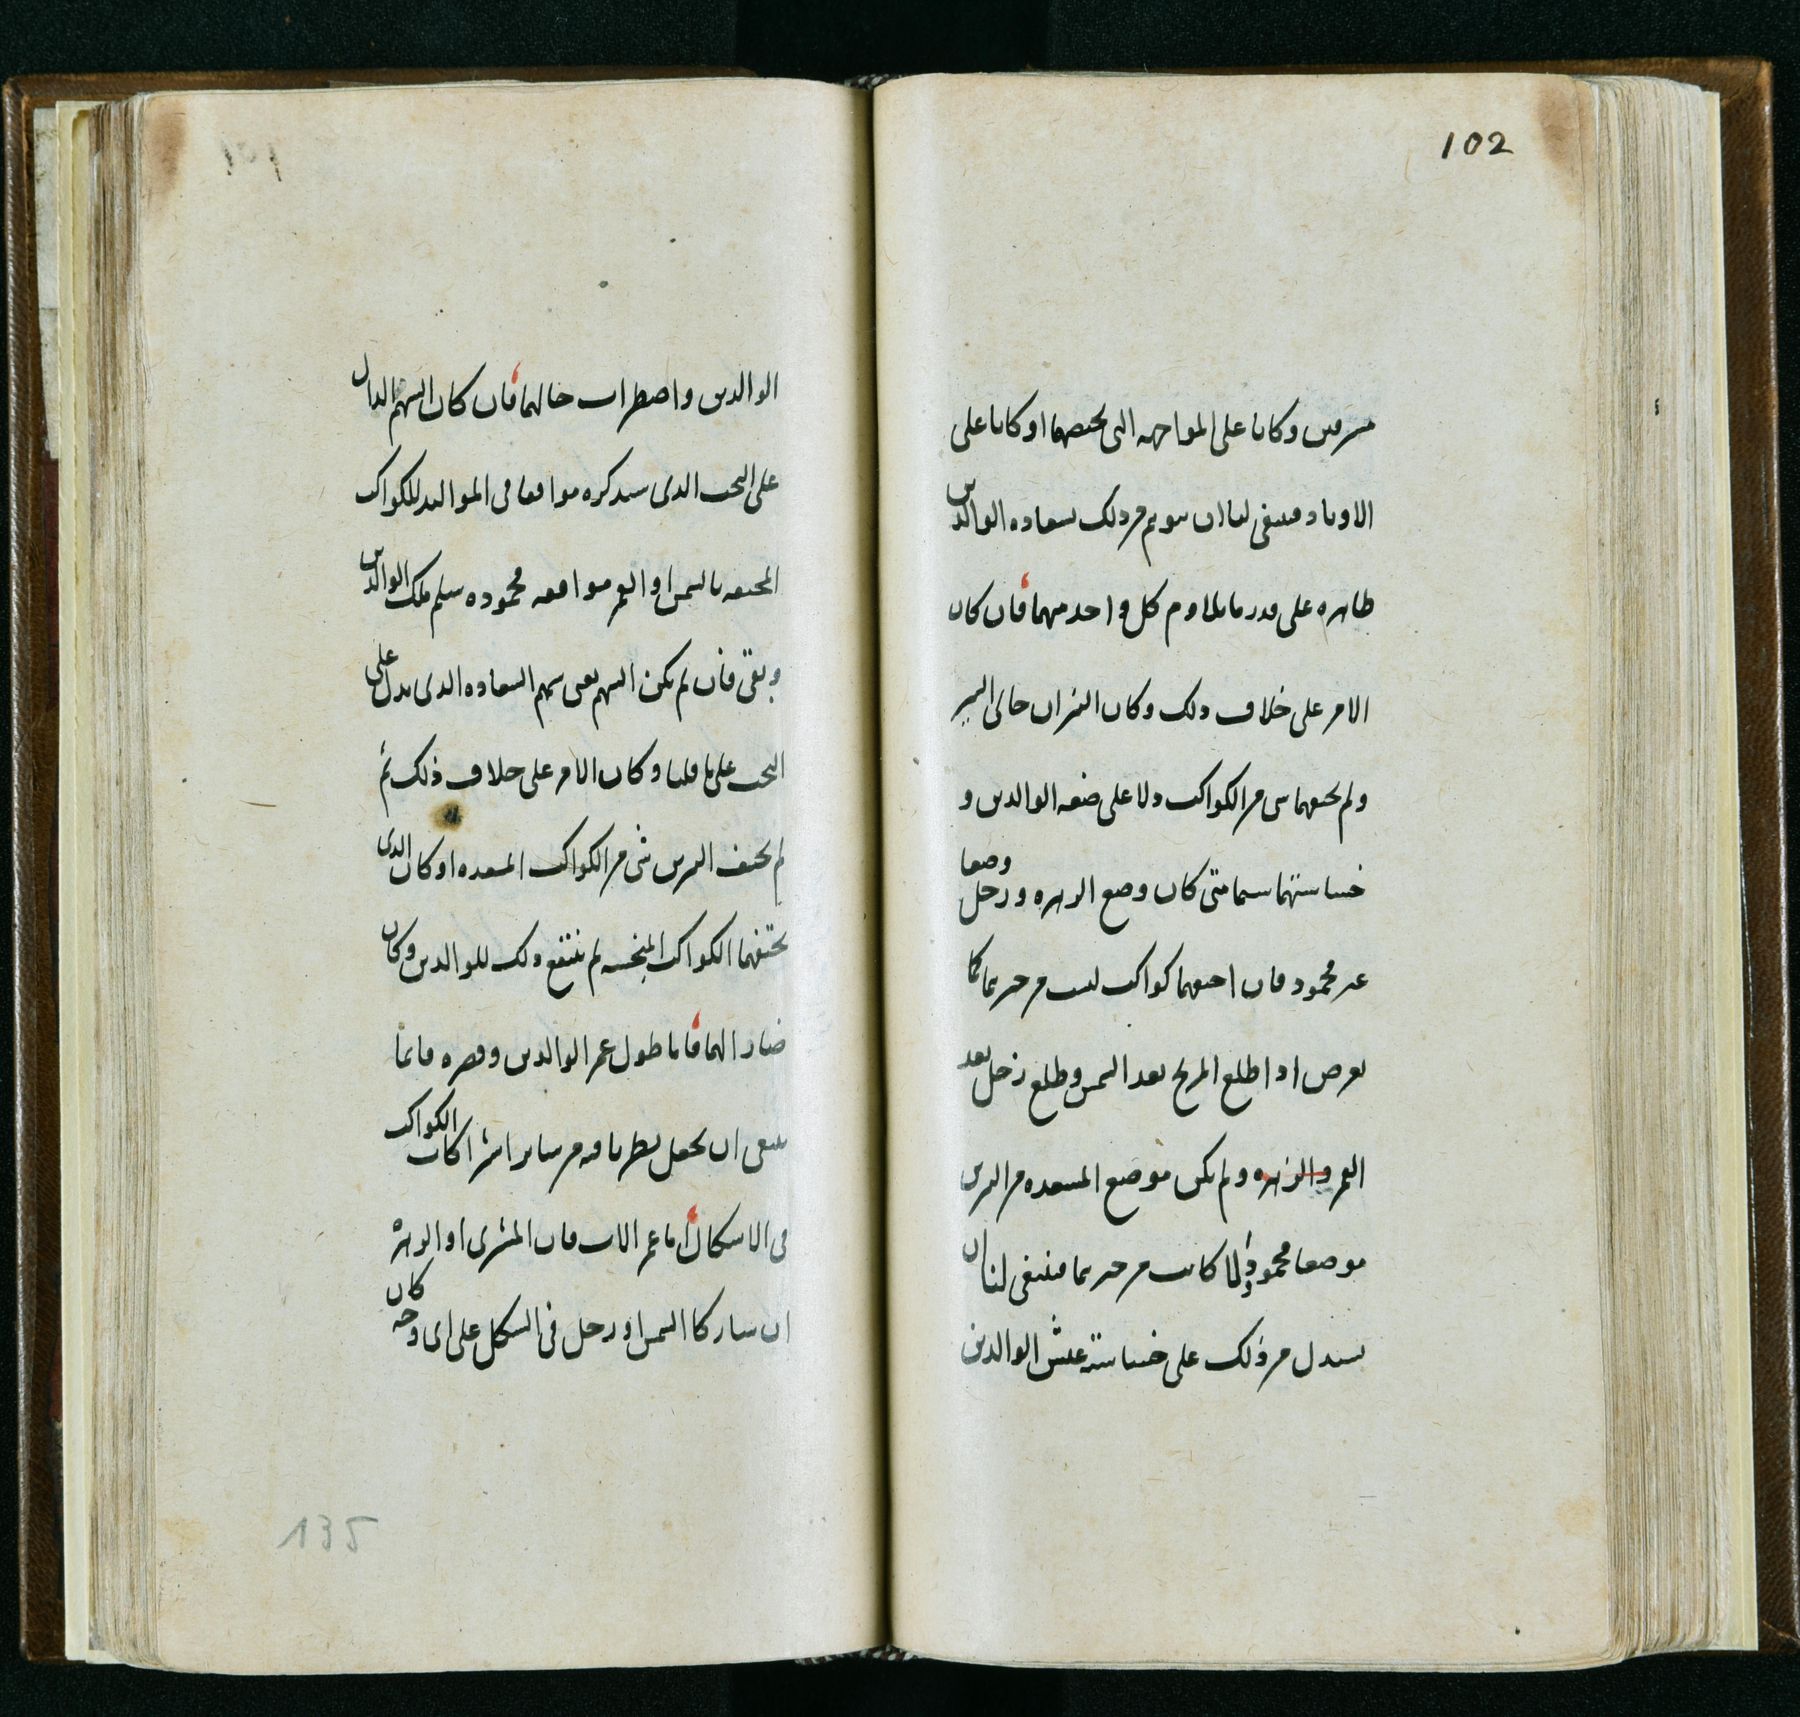 102
مشرقين وكانا على المواجهه التى تخصهما او كانا على
الاوتاد فينبغى لنا ان نتوهم من ذلك سعاده الوالدين
ظاهره على قدر ما يلاوم كل واحد منهما فان كان
الامر على خلاف ذلك وكان النيران خالى السير
ولم يحفهما شى من الكواكب دلا على ضعه الوالدين و
خساستهما سيما متى كان وضع الزهره وزحل وضعا
غير محمود فان احتفهما كواكب ليست من حيزيهما كما
يعرض اذا طلع المريخ بعد الشمس وطلع زحل بعد
القمر والزهره ولم يكن موضع المسعده من النيرين
موضعا محمودا ولا كانت من حيزيهما فينبغى لنا ان
نستدل من ذلك على خساسة عيش الوالدين
الوالدين واضطراب حالهما فان كان السهم الدال
على البخت الذى سنذكره موافقا فى المواليد للكواكب
المحتفه بالشمس او القمر موافقه محموده سلم ملك الوالدين
وبقى فان لم يكن السهم يعنى سهم السعاده الذى يدل على
البخت على ما قلنا وكان الامر على خلاف ذلك ثم
لم يحتف النيرين شى من الكواكب المسعده او كان الذى
يحتفهما الكواكب المنحسه لم ينتفع ذلك للوالدين وكان
ضارا لهما فاما طول عمر الوالدين وقصره فانما
ينبغى ان نجعل نظرنا فيه من سائر اشتراكات الكواكب
فى الاشكال اما عمر الاب فان المشترى او الزهرة
ان شاركا الشمس او زحل فى الشكل على اى وجه كان
135